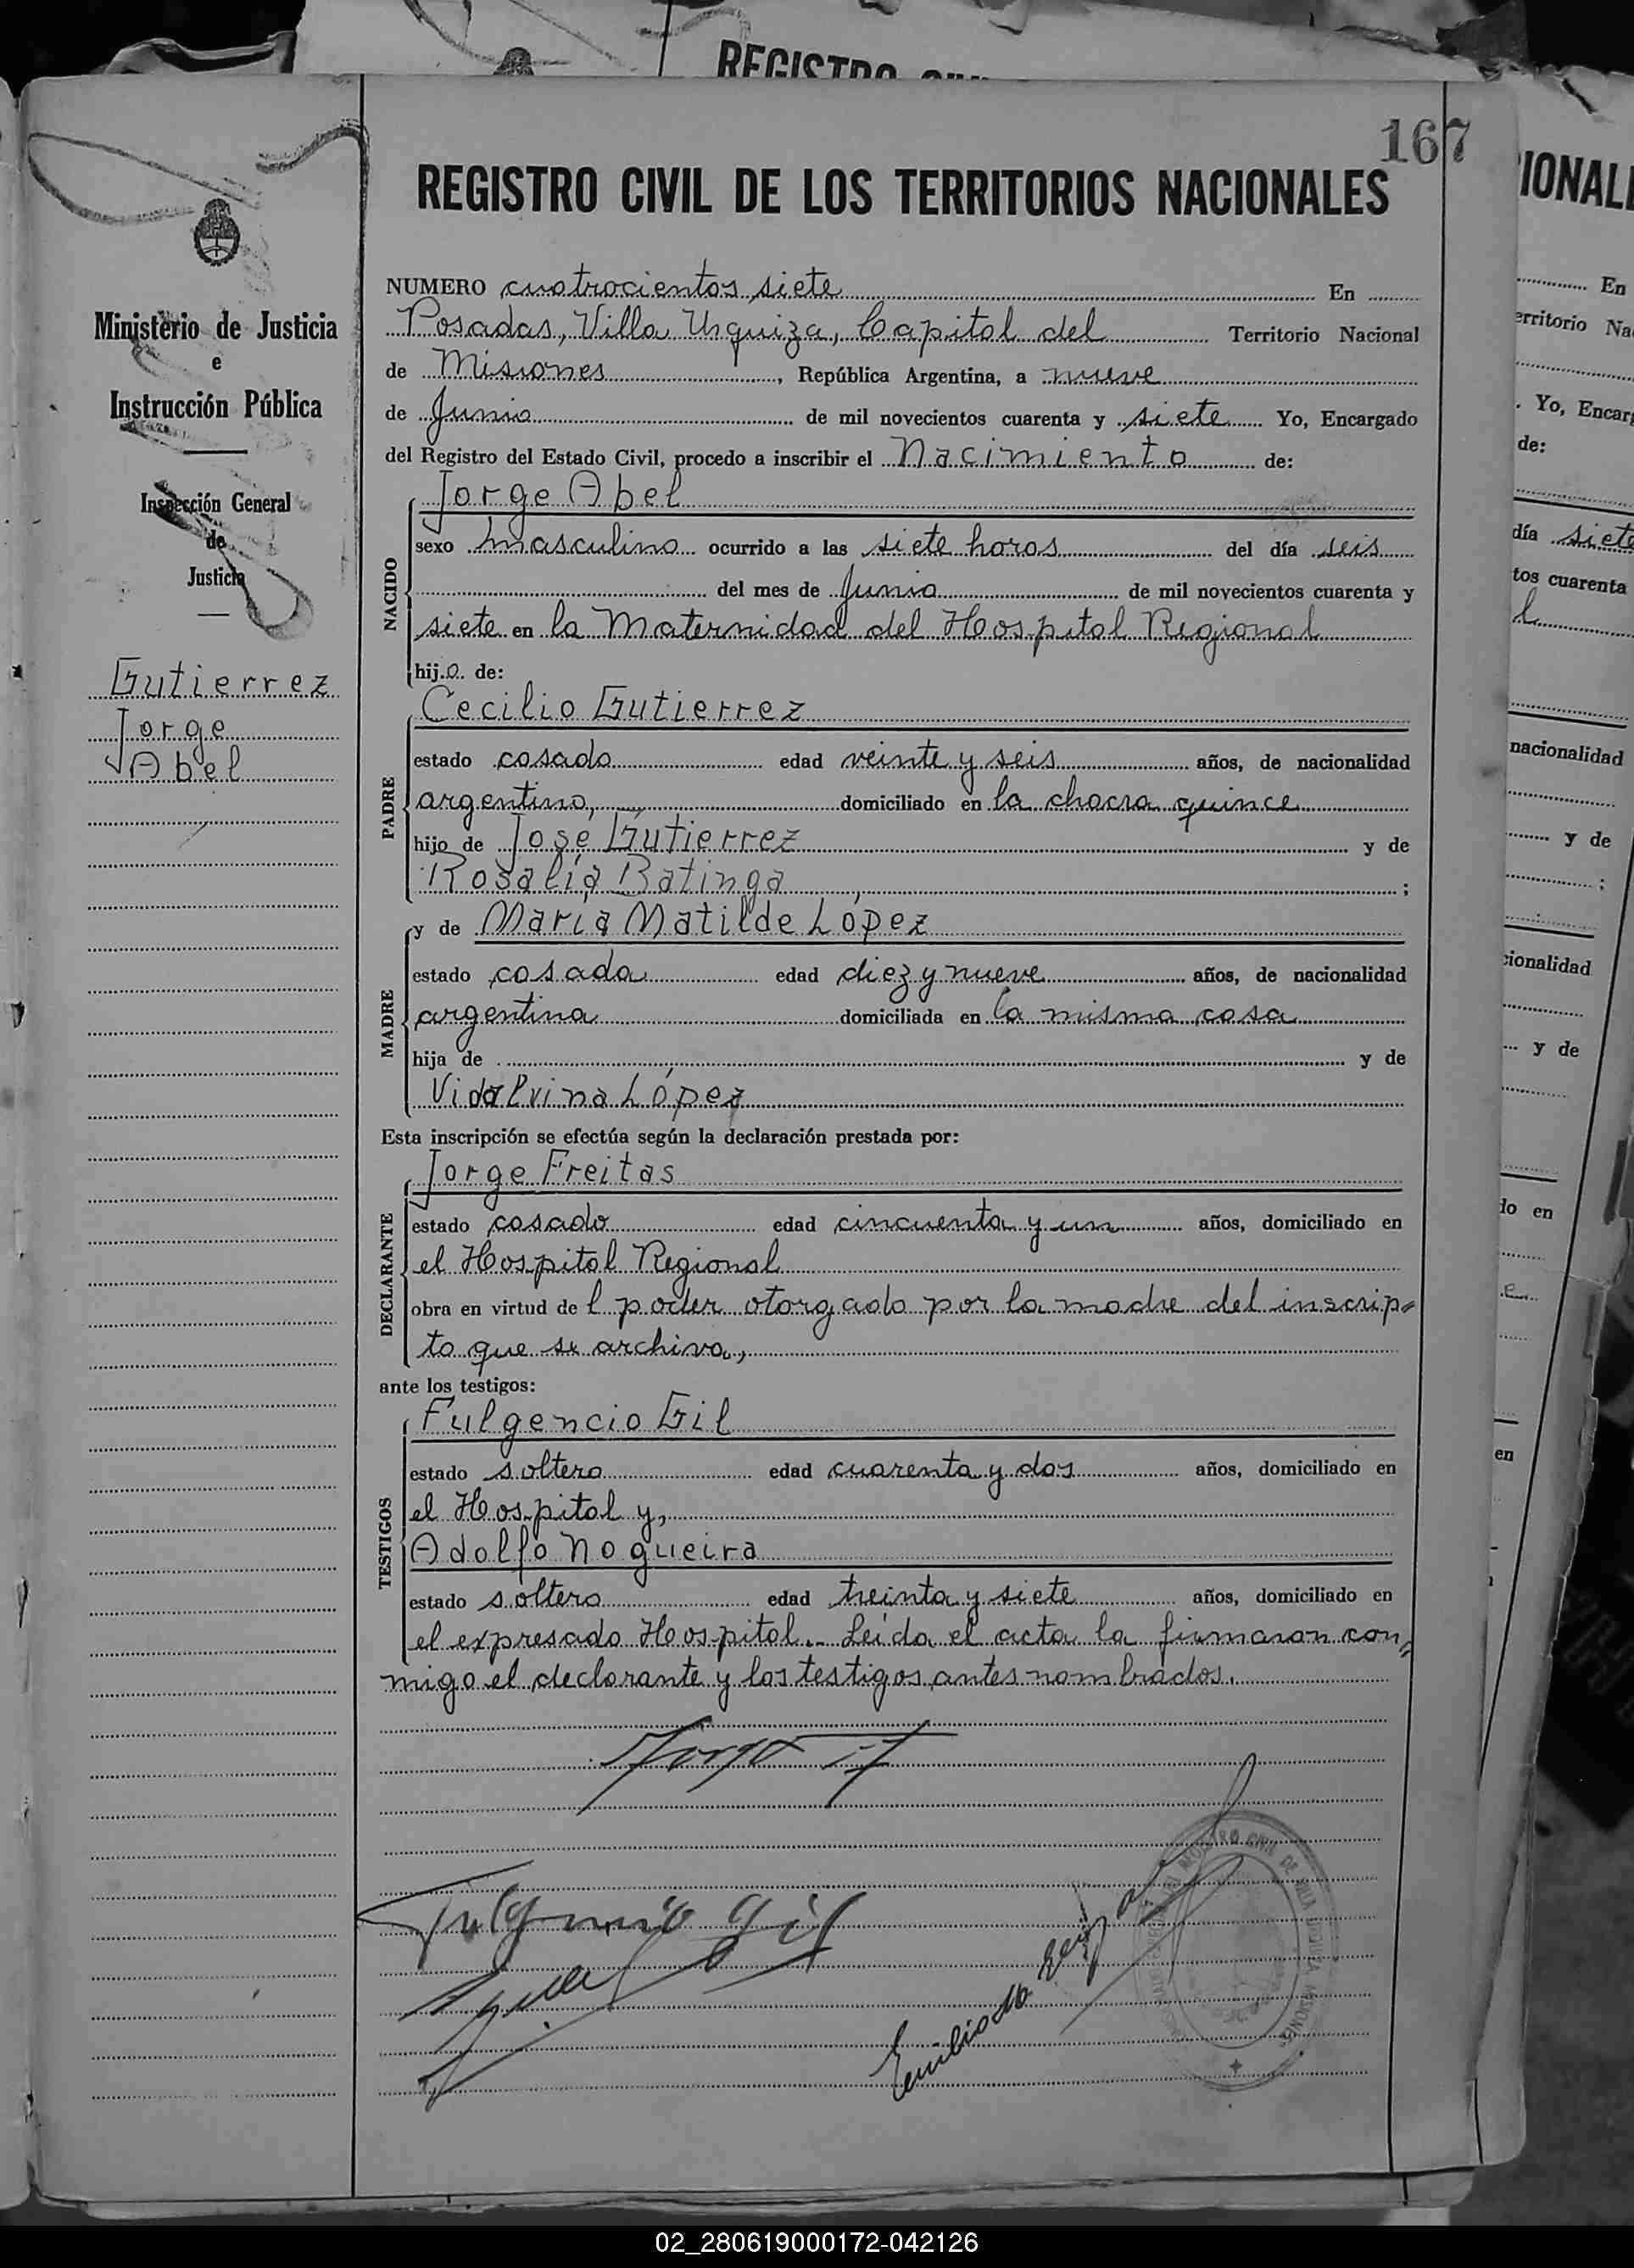 REGISTRO CIVIL
167
REGISTRO CIVIL DE LOS TERRITORIOS NACIONALES
Ministerio de Justicia
e
Instrucción Pública
Inspección General
de
Justicia
Gutierrez
Jorge
Abel
NUMERO cuatrocientos siete En
Posadas, Villa Urquiza, Capital del Territorio Nacional
de Misiones, República Argentina, a nueve
de Junio de mil novecientos cuarenta y siete Yo, Encargado
del Registro del Estado Civil, procedo a inscribir el Nacimiento de:
NACIDO
Jorge Abel
sexo masculino ocurrido a las siete horas del día seis
del mes de Junio de mil novecientos cuarenta y
siete en la Maternidad del Hospital Regional
hijo de:
PADRE
Cecilio Gutierrez
estado casado edad veinte y seis años, de nacionalidad
argentino, domiciliado en la chacra quince
hijo de José Gutierrez y de
Rosalía Batinga ;
MADRE
y de María Matilde López
estado casada edad diez y nueve años, de nacionalidad
argentina domiciliada en la misma casa
hija de y de
Vidalvina López
Esta inscripción se efectúa según la declaración prestada por:
DECLARANTE
Jorge Freitas
estado casado edad cincuenta y un años, domiciliado en
el Hospital Regional
obra en virtud del poder otorgado por la madre del inscrip=
to que se archiva,
ante los testigos:
TESTIGOS
Fulgencio Gil
estado soltero edad cuarenta y dos años, domiciliado en
el Hospital y,
Adolfo Nogueira
estado soltero edad treinta y siete años, domiciliado en
el expresado Hospital.- Leída el acta la firmaron con=
migo el declarante y los testigos antes nombrados.
Fulgencio Gil
REGISTRO CIVIL DE VILLA URQUIZA MISIONES
IONAL
En
erritorio Na
. Yo, Encarg
de:
día siete
tos cuarenta
nacionalidad
y de
;
cionalidad
y de
do en
en
02_280619000172-042126